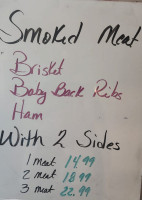 Smoked Meat
Brisket
Baby Back Ribs
Ham
With 2 Sides
1 meat 14.99
2 meat 18.99
3 meat 22.99